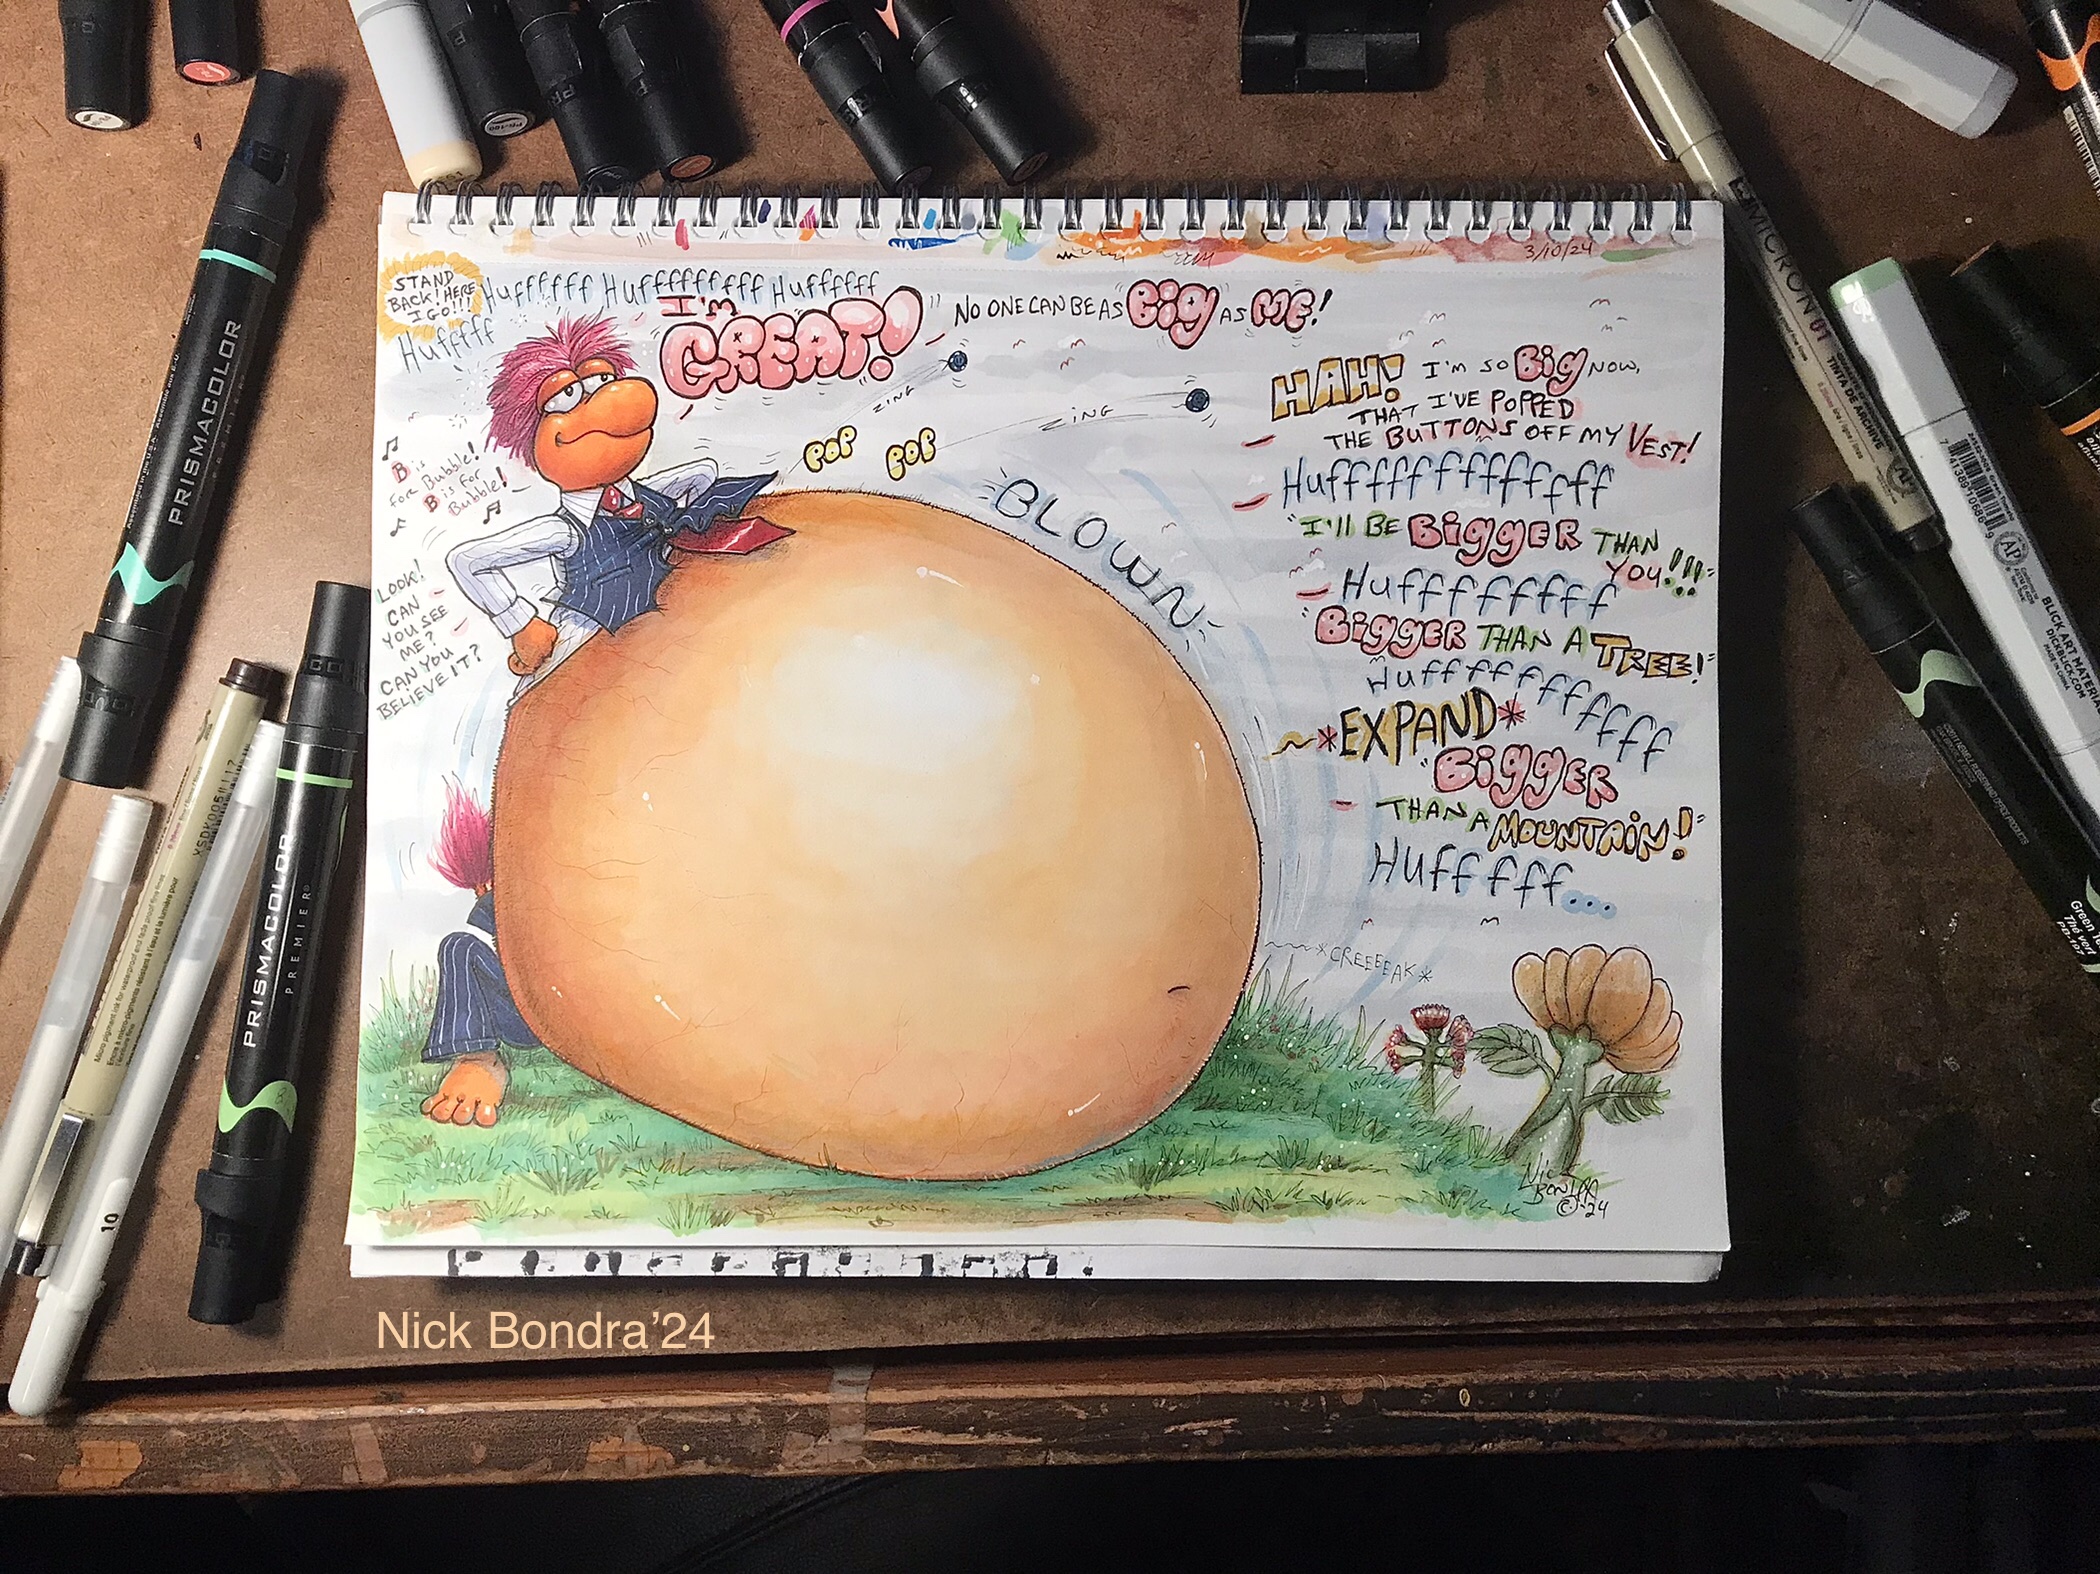 3/10/24
STAND
BACK! HERE
I GO!!!
Huffffff Hufffffffff Huffffff
Hufffff
I'm
GREAT!
" NO ONE CAN BE AS Big AS ME!
ZING
ZING
POP POP
HAH! I'M SO Big NOW,
THAT I'VE POPPED
THE BUTTONS OFF MY VEST!
Hufffffffffffff
"I'll BE BiggER THAN
YOU!!!"
Hufffffffff
"BiggER THAN A TREE!"
Huffffffffffff
*EXPAND*
"BiggER
THAN A MOUNTAiN!"
Huffffff...
B is
for Bubble!
B is for
Bubble!
LOOK!
CAN
YOU SEE
ME?
CAN YOU
BELIEVE IT?
BLOWN
*CREEEEAK*
Nick
BONDRA
© -24
Nick Bondra'24
PRISMACOLOR
PRISMACOLOR
PREMIER
10
MICRON 01
TINTA DE ARCHIVE
BLICK ART MATERIALS
DICKBLICK.COM